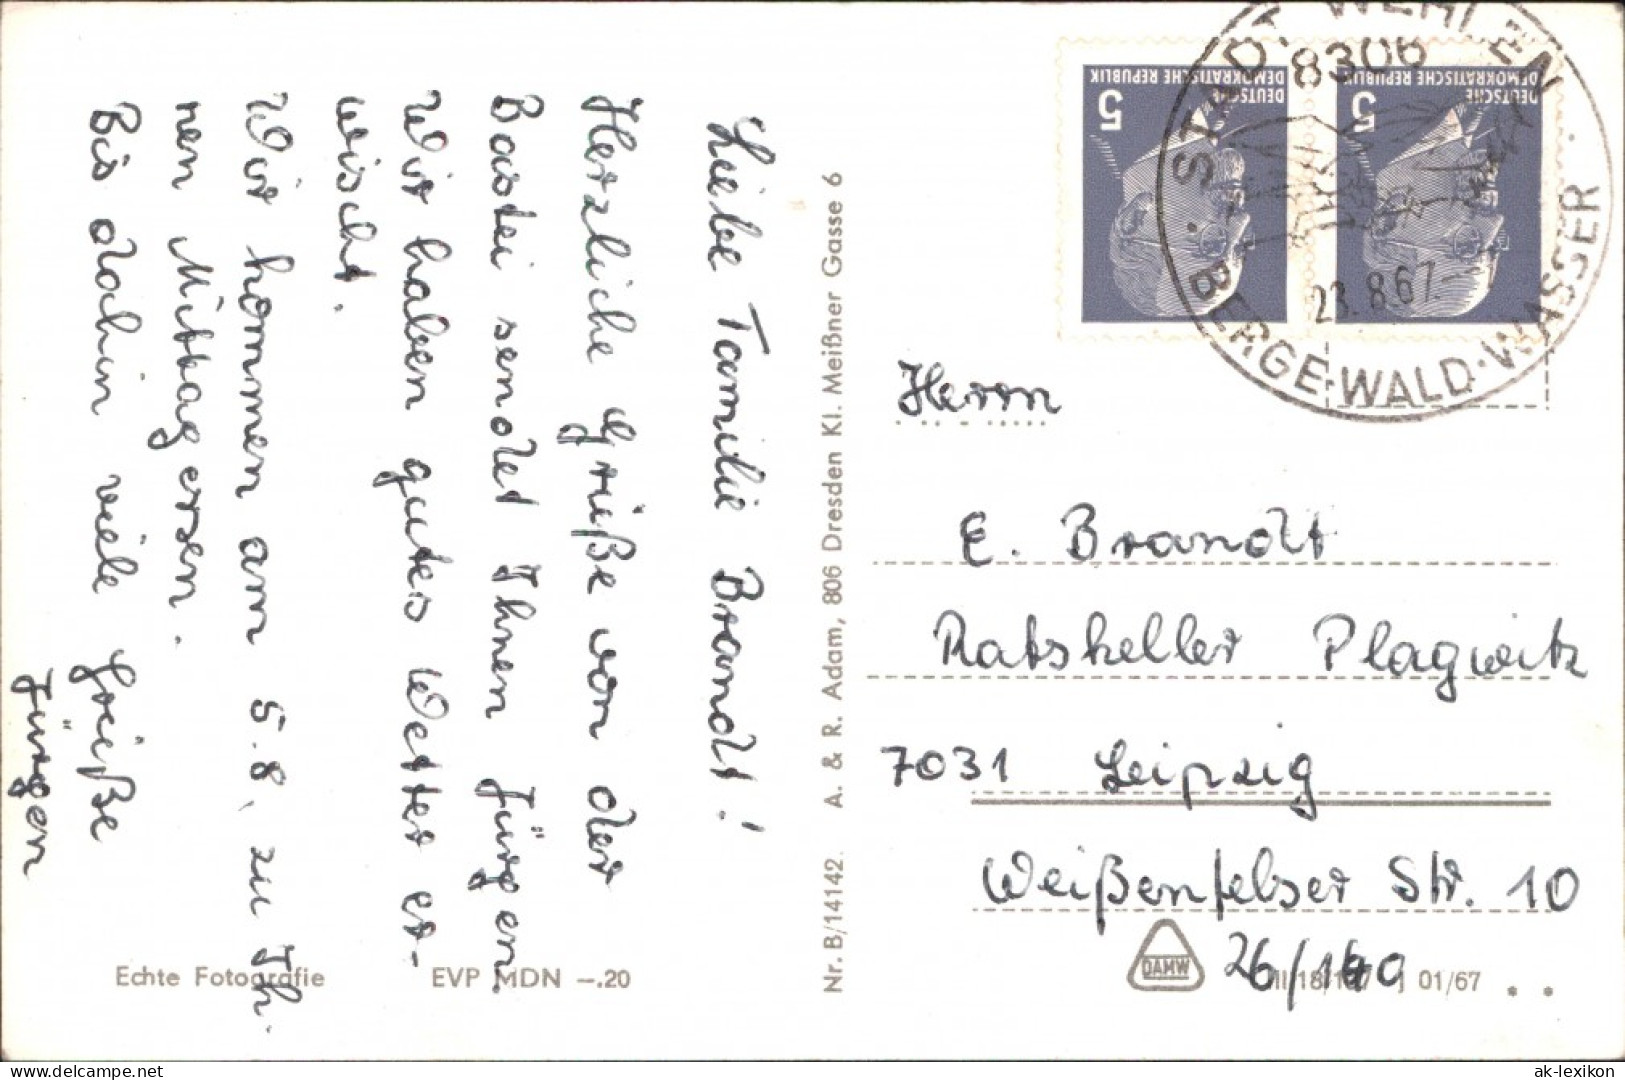 Liebe Familie Brandt!
Herzliche Grüße von der
Bastei sendet Ihnen Jürgen.
Wir haben gutes Wetter er-
wischt.
Wir kommen am 5.8. zu Ih.
nen Mittag essen.
Bis dahin viele Grüße
Jürgen
Echte Fotografie
EVP MDN –.20
Nr. B/14142. A. & R. Adam, 806 Dresden Kl. Meißner Gasse 6
DEUTSCHE
DEMOKRATISCHE REPUBLIK
5
DEUTSCHE
DEMOKRATISCHE REPUBLIK
5
STADT WEHLEN
8306
23.8.67.-
BERGE·WALD·WASSER
Herrn
E. Brandt
Ratskeller Plagwitz
7031 Leipzig
Weißenfelser Str. 10
DAMW
26/
III/18/ J 01/67
www.ansichtskarten-lexikon.de
ak-lexikon